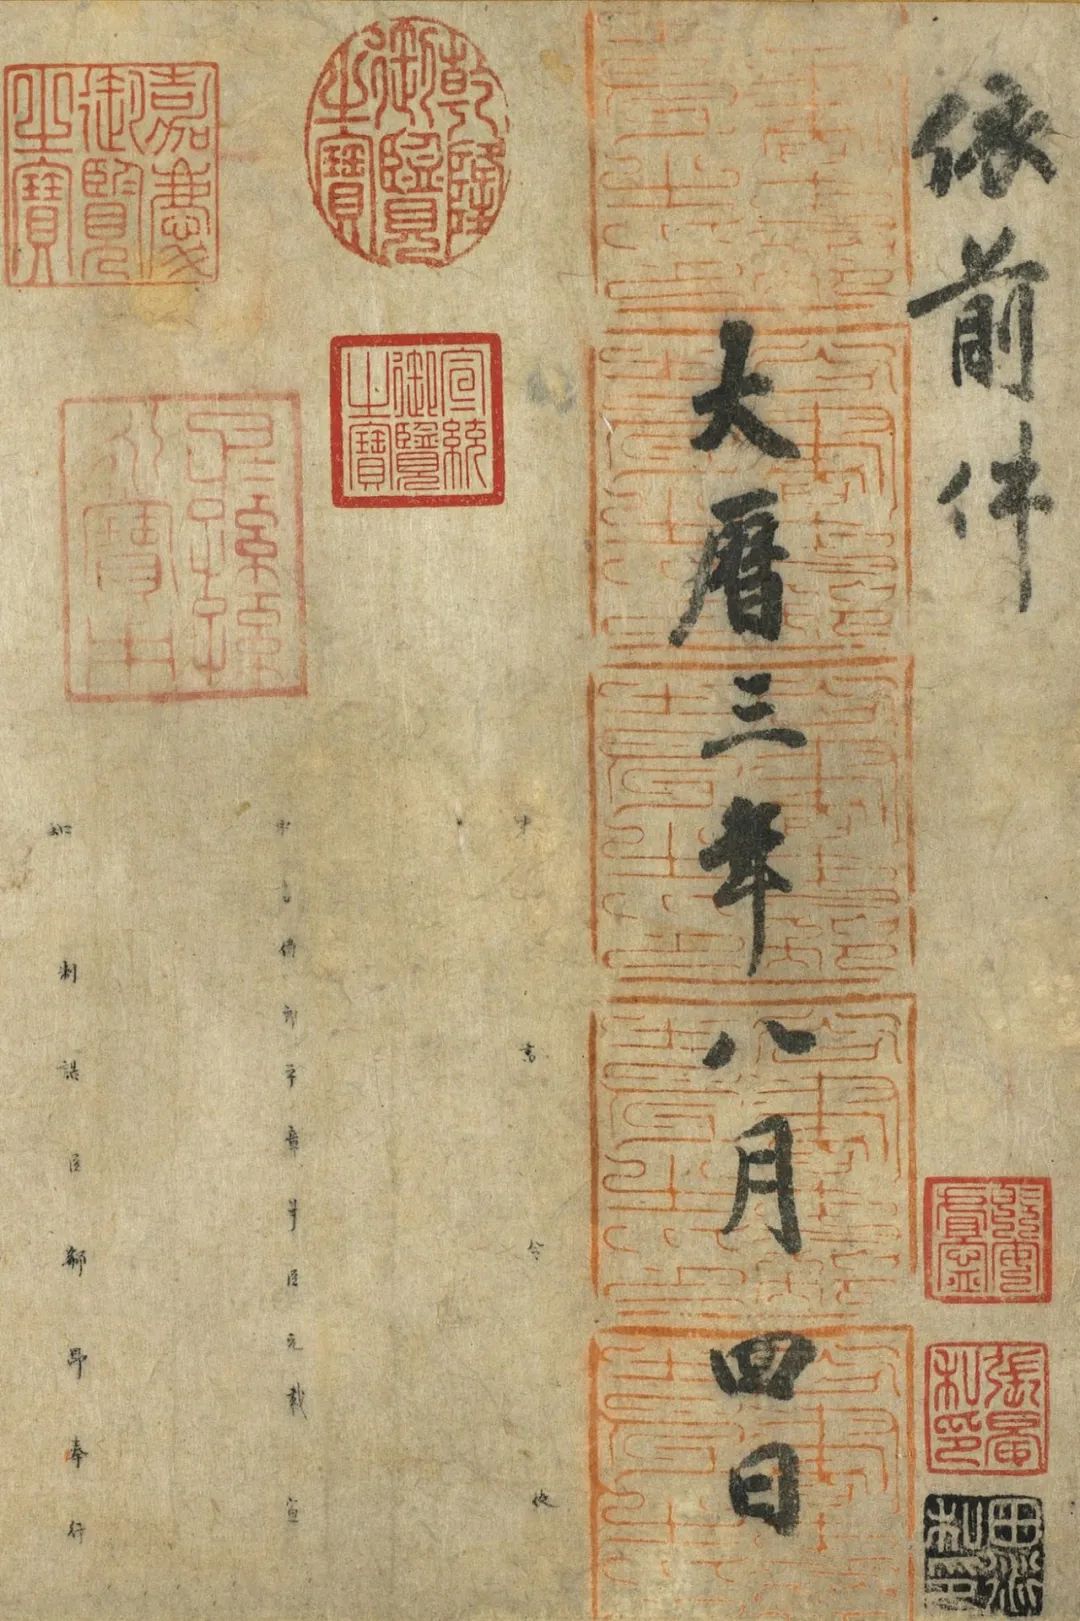 依前件
張晏私印
大曆三年八月四日
中書令 使
中書侍郎平章事臣元載 宣
知制誥臣郗昂奉行
乾隆御覽之寶
宣統御覽之寶
嘉慶御覽之寶